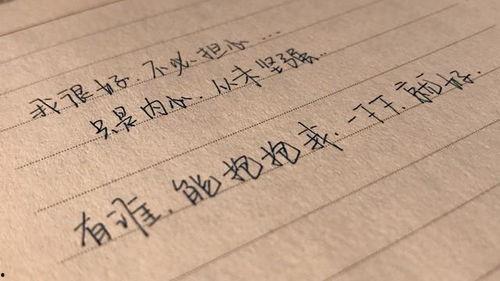 我很好.不必担心...
只是内心.从未坚强...
有谁.能抱抱我.一下.就好.